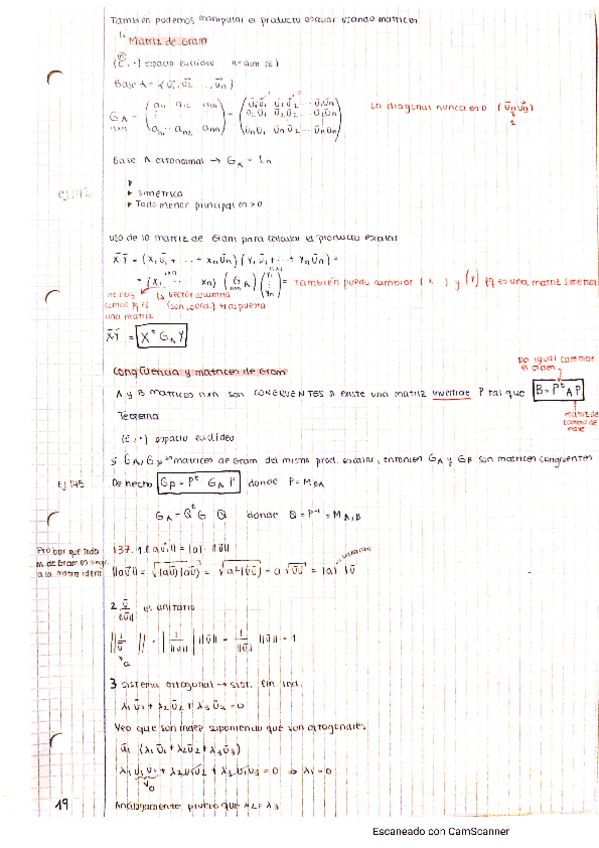 También podemos manipular el producto escalar usando matrices
↳ Matriz de Gram
(E, ·) espacio euclídeo n = dim (E)
Base A = {ū₁, ū₂ ..., ūn}
G_A = (a₁₁ a₁₂ a₁n
a₁n a₂n ann) = (ū₁ū₁ ū₁ū₂ ... ū₁ūn
ū₂ū₁ ū₂ū₂ ... ū₂ūn
ūnū₁ ūnū₂ ... ūnūn)
n×n
La diagonal nunca en 0
Base A ortonormal → G_A = In
EJ 142
▸ Simétrica
▸ Todo menor principal es > 0
Uso de la matriz de Gram para calcular el producto escalar
x̄ȳ = (x₁ū₁ + ... + xnūn)(y₁ū₁ + ... + ynūn) =
= (x₁ ... xn) (G_A) (y₁ ⋮ yn) = También puedo cambiar (x) y (y) pq es una matriz simétrica
↳ vector columna
traspuesta
una matriz
x̄ȳ = Xᵗ G_A Y
Congruencia y matrices de Gram
Da igual cambiar
el orden
A y B matrices n×n son CONGRUENTES si existe una matriz invertible P tal que B = Pᵗ A P
matriz de
cambio de
base
Teorema
(E, ·) espacio euclídeo
Si G_A, G_B matrices de Gram del mismo prod. escalar, entonces G_A y G_B son matrices congruentes
EJ 145
De hecho G_B = Pᵗ G_A P donde P = M_BA
G_A = Qᵗ G Q donde Q = P⁻¹ = M_A,B
Probar que toda
m. de Gram es
a la matriz iden.
137. 1. ||aū|| = |a| · ||ū||
||aū|| = √(aū)(aū) = √a²(ūū) = a √ūū = |a| ū
2. ū/||ū|| es unitario
||1/ū|| = |1/||ū||| ||ū|| = 1/||ū|| ||ū|| = 1
a
3 sistema ortogonal → sist. lin. ind.
λ₁ū₁ + λ₂ū₂ + λ₃ū₃ = 0
Veo que son indep suponiendo que son ortogonales
ū₁ (λ₁ū₁ + λ₂ū₂ + λ₃ū₃)
λ₁ū₁ū₁ + λ₂ū₁ū₂ + λ₃ū₁ū₃ = 0 ⇒ λ₁ = 0
Análogamente pruebo que λ₂ = λ₃
19
Escaneado con CamScanner